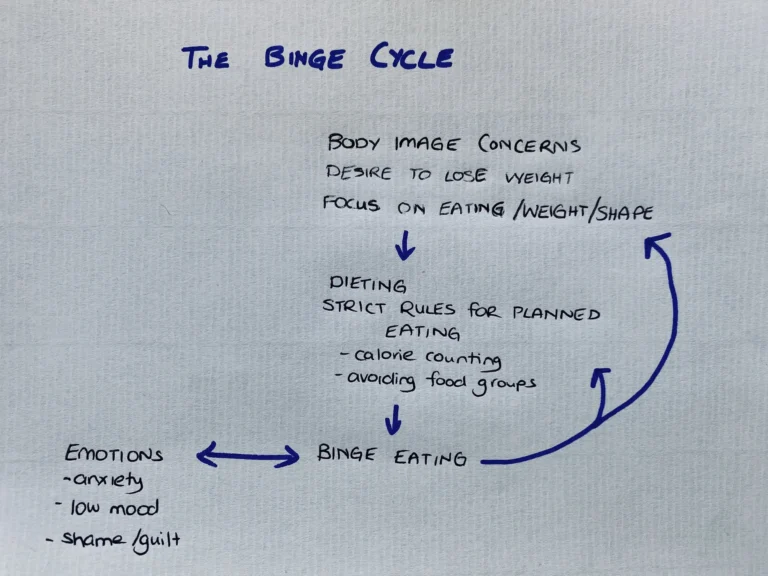 THE BINGE CYCLE
BODY IMAGE CONCERNS
DESIRE TO LOSE WEIGHT
FOCUS ON EATING/WEIGHT/SHAPE
DIETING
STRICT RULES FOR PLANNED
EATING
- calorie counting
- avoiding food groups
BINGE EATING
EMOTIONS
- anxiety
- low mood
- shame/guilt